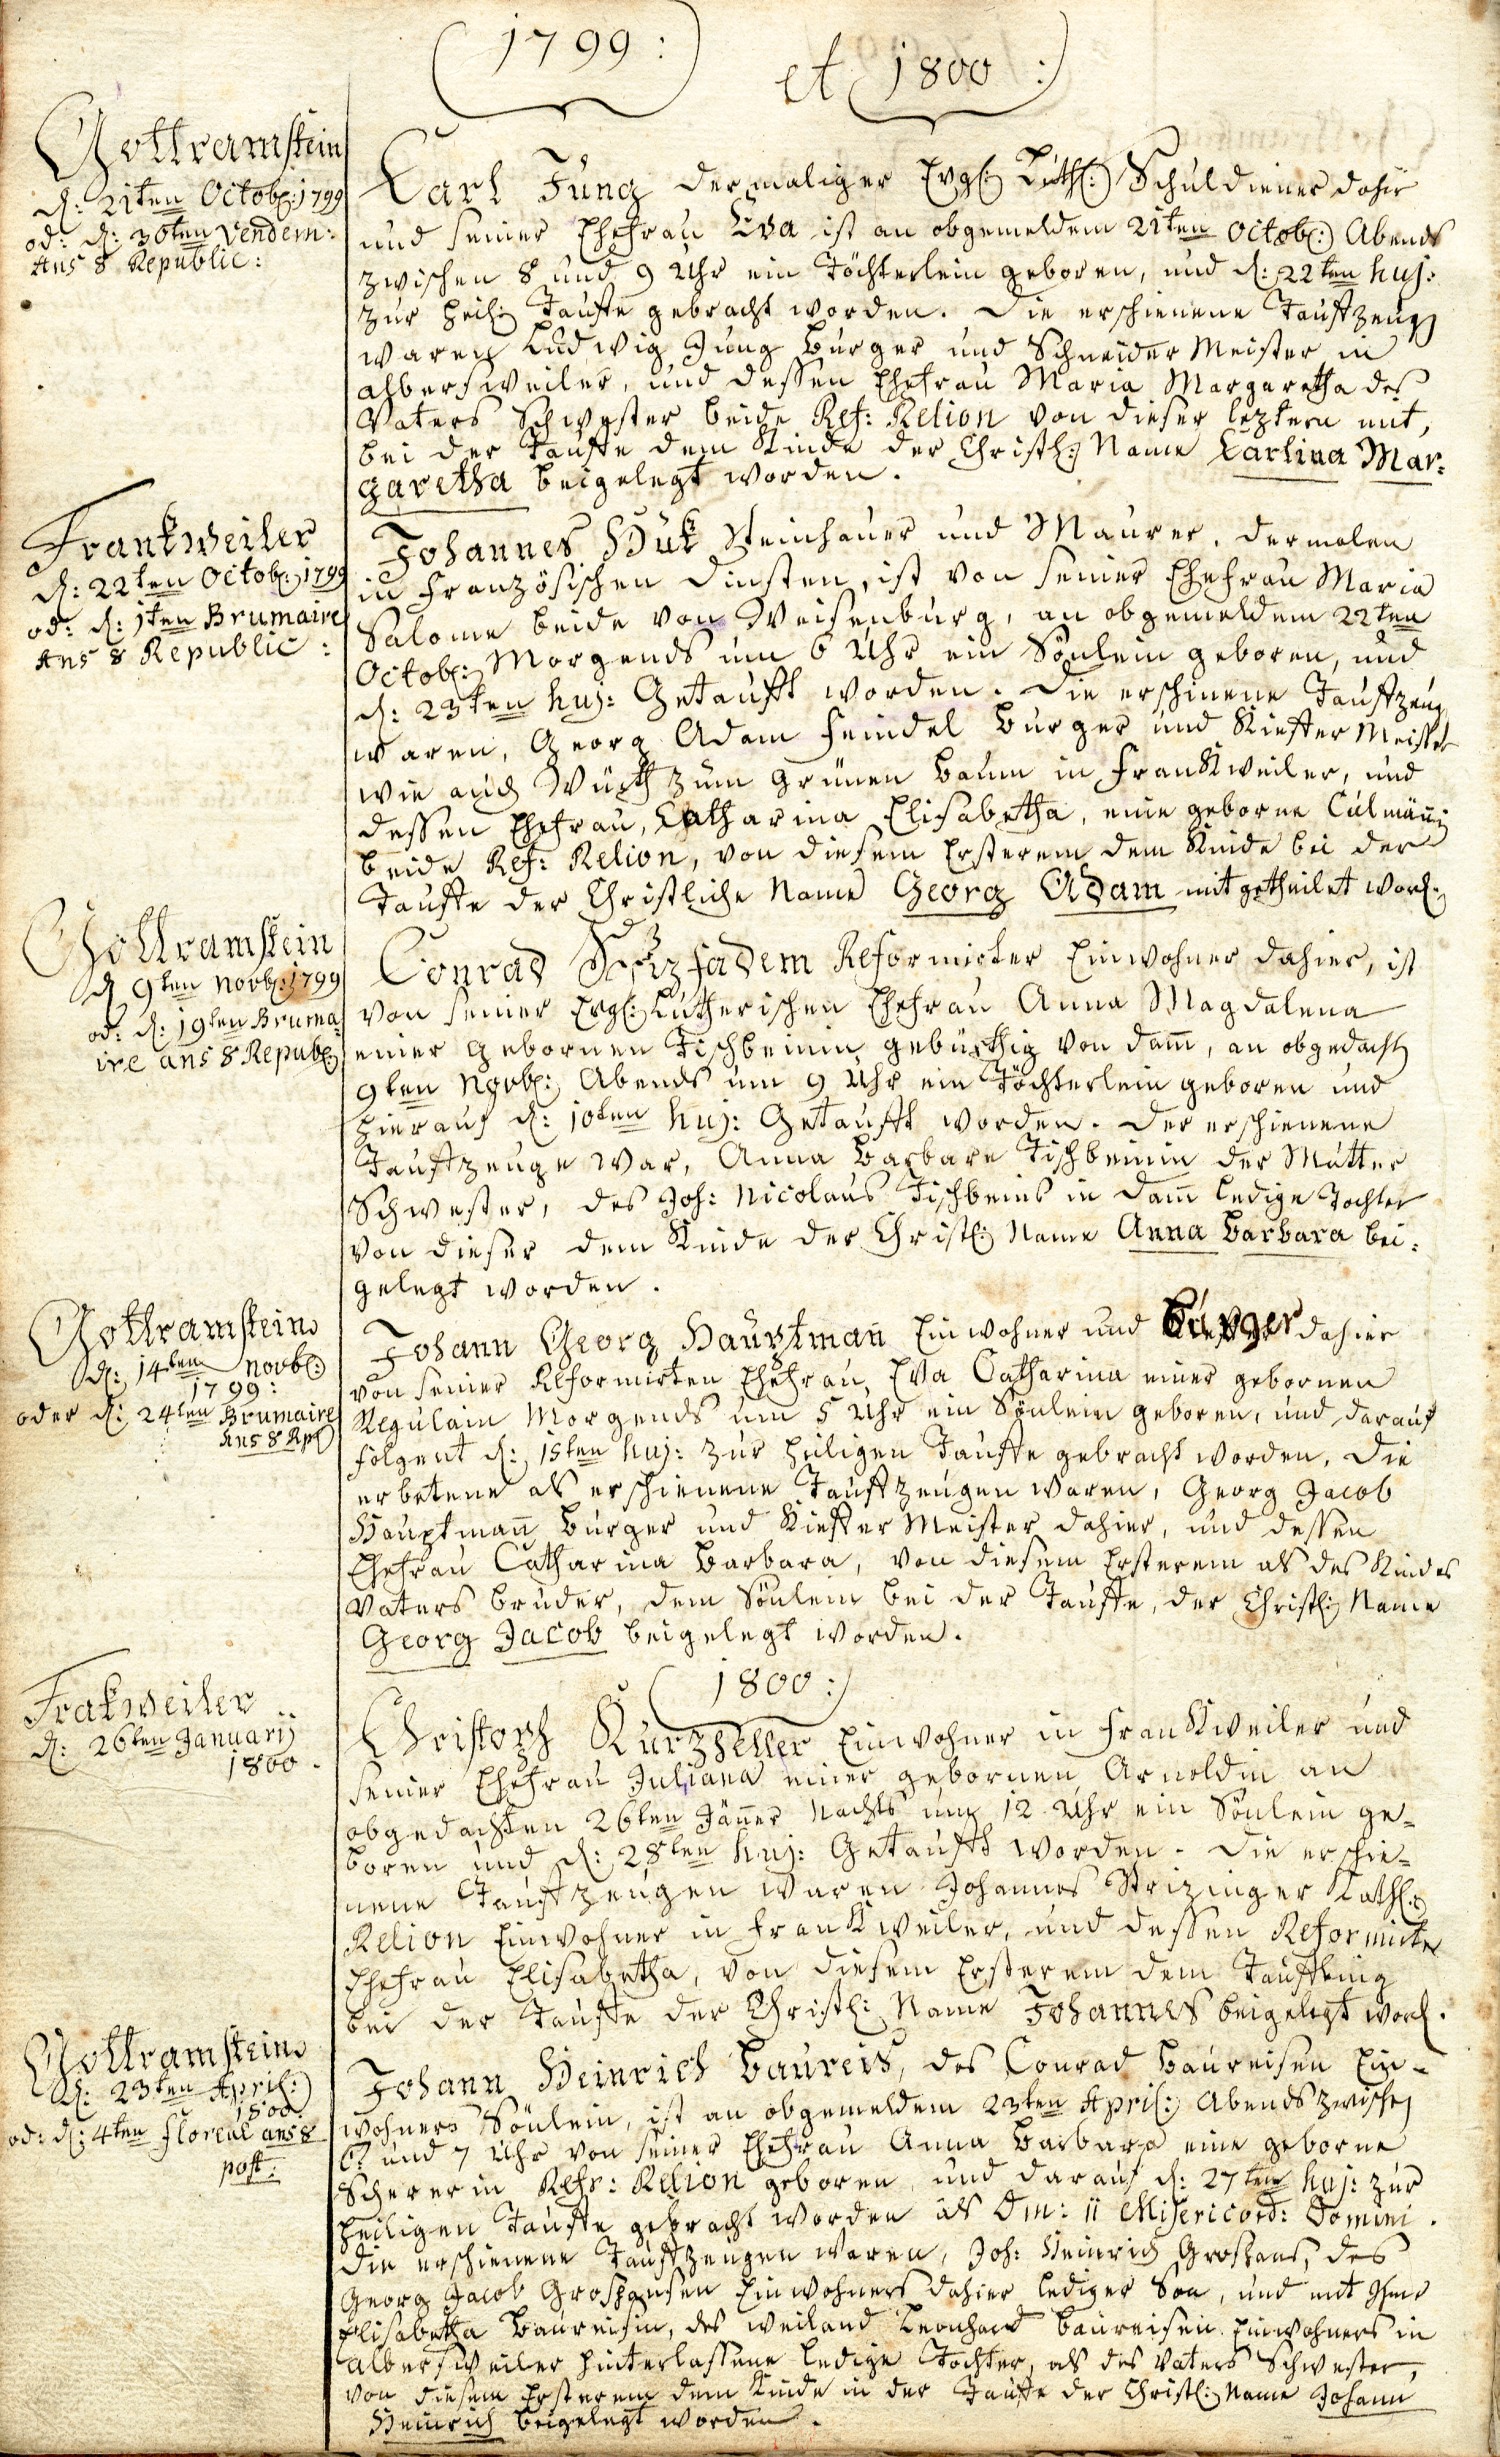 1799:
et 1800:
Gottramstein
d: 21ten Octob: 1799
od: d: 30ten Vendem:
Ans 8 Republic:
Carl Jung dermaliger Evgl: Luth: Schuldiener dahir
und seiner Ehefrau Eva ist an obgemeldem 21ten Octob: Abends
zwischen 8 und 9 Uhr ein Töchterlein geboren, und d: 22ten huj:
zur heil: Tauffe gebracht worden. Die erschienene Taufzeug
waren Ludwig Jung Burger und Schneider Meister in
Albersweiler, und dessen Ehefrau Maria Margaretha des
Vaters Schwester beide Ref: Relion von dieser leztern mit,
bei der Tauffe dem Kinde der Christl: Name Carlina Mar:
garetha beigelegt worden.
Frankweiler
d: 22ten Octob: 1799
od: d: 1ten Brumaire
Ans 8 Republic:
Johannes Huk Steinhauer und Maurer, dermalen
in Französischen Dinsten, ist von seiner Ehefrau Maria
Salome beide von Weisenburg, an obgemeldem 22ten
Octob: Morgends um 6 Uhr ein Sönlein geboren, und
d: 23ten huj: Getaufft worden. Die erschinene Taufzeug
waren, Georg Adam Feindel Burger und Kieffer Meister
wie auch Würth zum Grünen Baum in Frankweiler, und
dessen Ehefrau, Catharina Elisabetha, eine geborne Culmänni
beide Ref: Relion, von diesem Ersterem dem Kinde bei der
Tauffe der Christliche Name Georg Adam mitgetheilet word:
Gottramstein
d 9ten Novb: 1799
od: d: 19ten Bruma
ire ans 8 Repub:
Conrad Reformirter Einwohner dahier, ist
von seiner Evgl: Lutherischen Ehefrau Anna Magdalena
einer gebornen Tischbeinin gebürthig von Dam̄, an obgedacht
9ten Novb: Abends um 9 Uhr ein Töchterlein geboren und
hierauf d: 10ten huj: Getaufft worden. Der erschienene
Taufzeuge war, Anna Barbara Tischbeinin der Mutter
Schwester, des Joh: Nicolaus Tischbeins in Dam̄ ledige Tochter
von dieser dem Kinde der Christl: Name Anna Barbara bei:
gelegt worden.
Gottramstein
d: 14ten Novb:
1799:
oder d: 24ten Brumaire
Ans 8 Rp
Johann Georg Hauptman̄ Einwohner und Burger dahier
von seiner Reformirten Ehefrau, Eva Catharina einer gebornen
Regulain Morgends um 5 Uhr ein Sönlein geboren, und darauf
folgent d: 15ten huj: zur heiligen Tauffe gebracht worden. Die
erbetene als erschienene Taufzeugen waren, Georg Jacob
Hauptman̄ Burger und Kieffer Meister dahier, und dessen
Ehefrau Catharina Barbara, von diesem Ersterem als des Kindes
Vaters Bruder, dem Sönlein bei der Tauffe, der Christl: Name
Georg Jacob beigelegt worden.
1800:
Frakweiler
d: 26ten Januarij
1800.
Christoph Kurzheller Einwohner in Frankweiler und
seiner Ehefrau Juliana einer gebornen Arnoldin an
obgedachten 26ten Jäner Nachts um 12 Uhr ein Sönlein ge-
boren und d: 28ten huj: Getaufft worden. Die erschie-
nene Taufzeugen waren Johannes Strizinger Kath:
Relion Einwohner in Frankweiler, und dessen Reformirte
Ehefrau Elisabetha, von diesem Ersterem dem Täuffling
bei der Tauffe der Christl: Name Johannes beigelegt word.
Gottramstein
d: 23ten April:
1800.
od: d: 4ten floreal ans 8
post:
Johann Heinrich Baureis, des Conrad Baureisen Ein-
wohners Sönlein, ist an obgemeldem 23ten April: Abends zwischen
6 und 7 Uhr von seiner Ehefrau Anna Barbara eine geborne
Schererin Refr: Relion geboren, und darauf d: 27ten huj: zur
heiligen Tauffe gebracht worden als Dm: II Misericord: Domini.
Die erschienene Taufzeugen waren, Joh: Heinrich Groshans, des
Georg Jacob Groshansen Einwohners dahier lediger Son, und mit Ihme
Elisabetha Baureisin, des weiland Leonhard Baureisen Einwohners in
Albersweiler hinterlassene ledige Tochter, als des Vaters Schwester,
von diesem Ersterem dem Kinde in der Tauffe der Christl: Name Johann
Heinrich beigelegt worden.